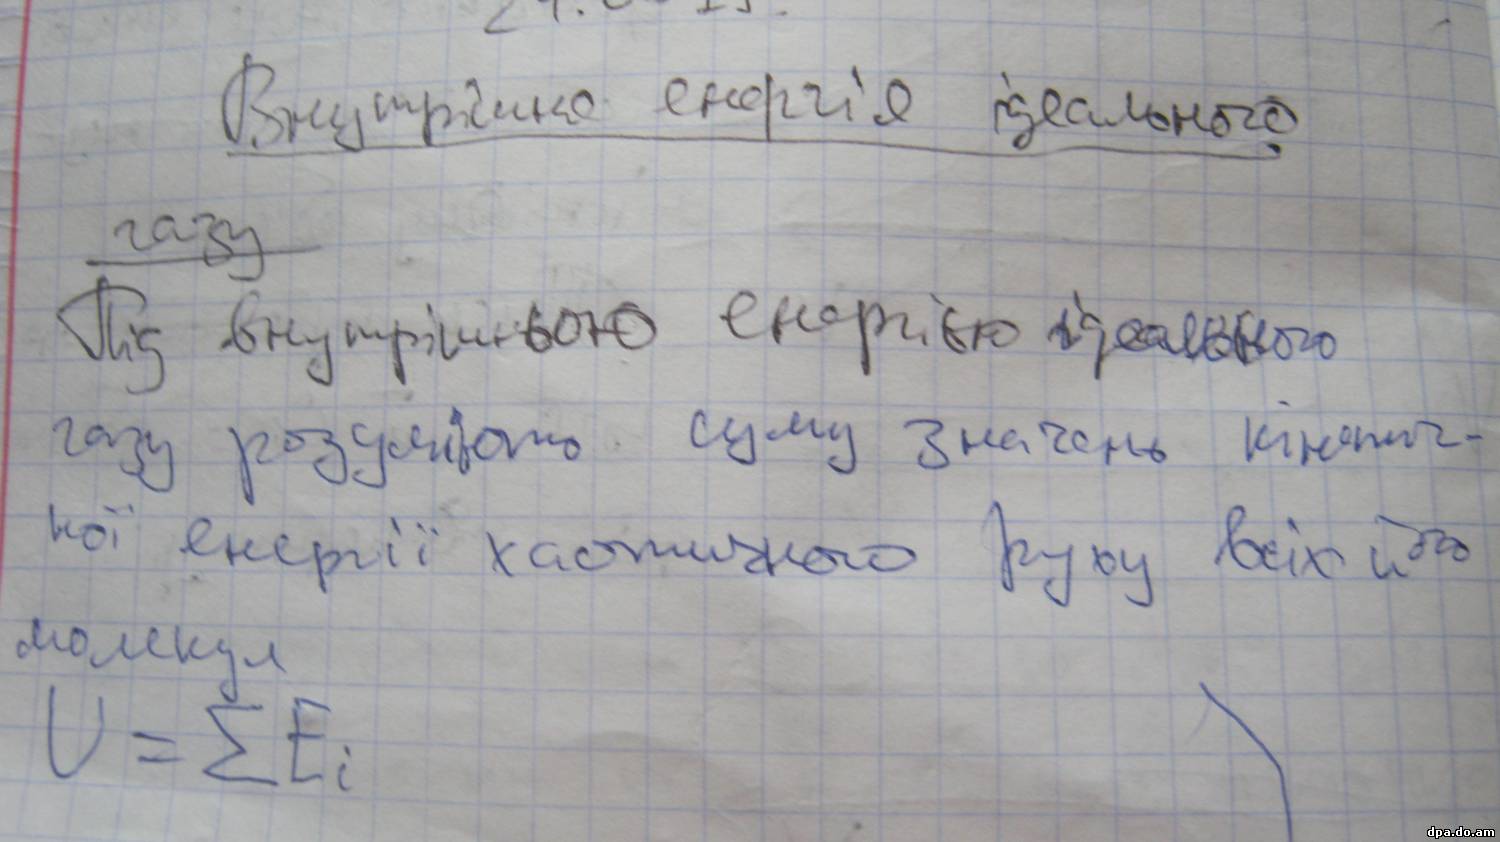 Внутрішня енергія ідеального
газу
Під внутрішньою енергією ідеального
газу розуміють суму значень кінетич-
ної енергії хаотичного руху всіх його
молекул
U = ΣEi
dpa.do.am